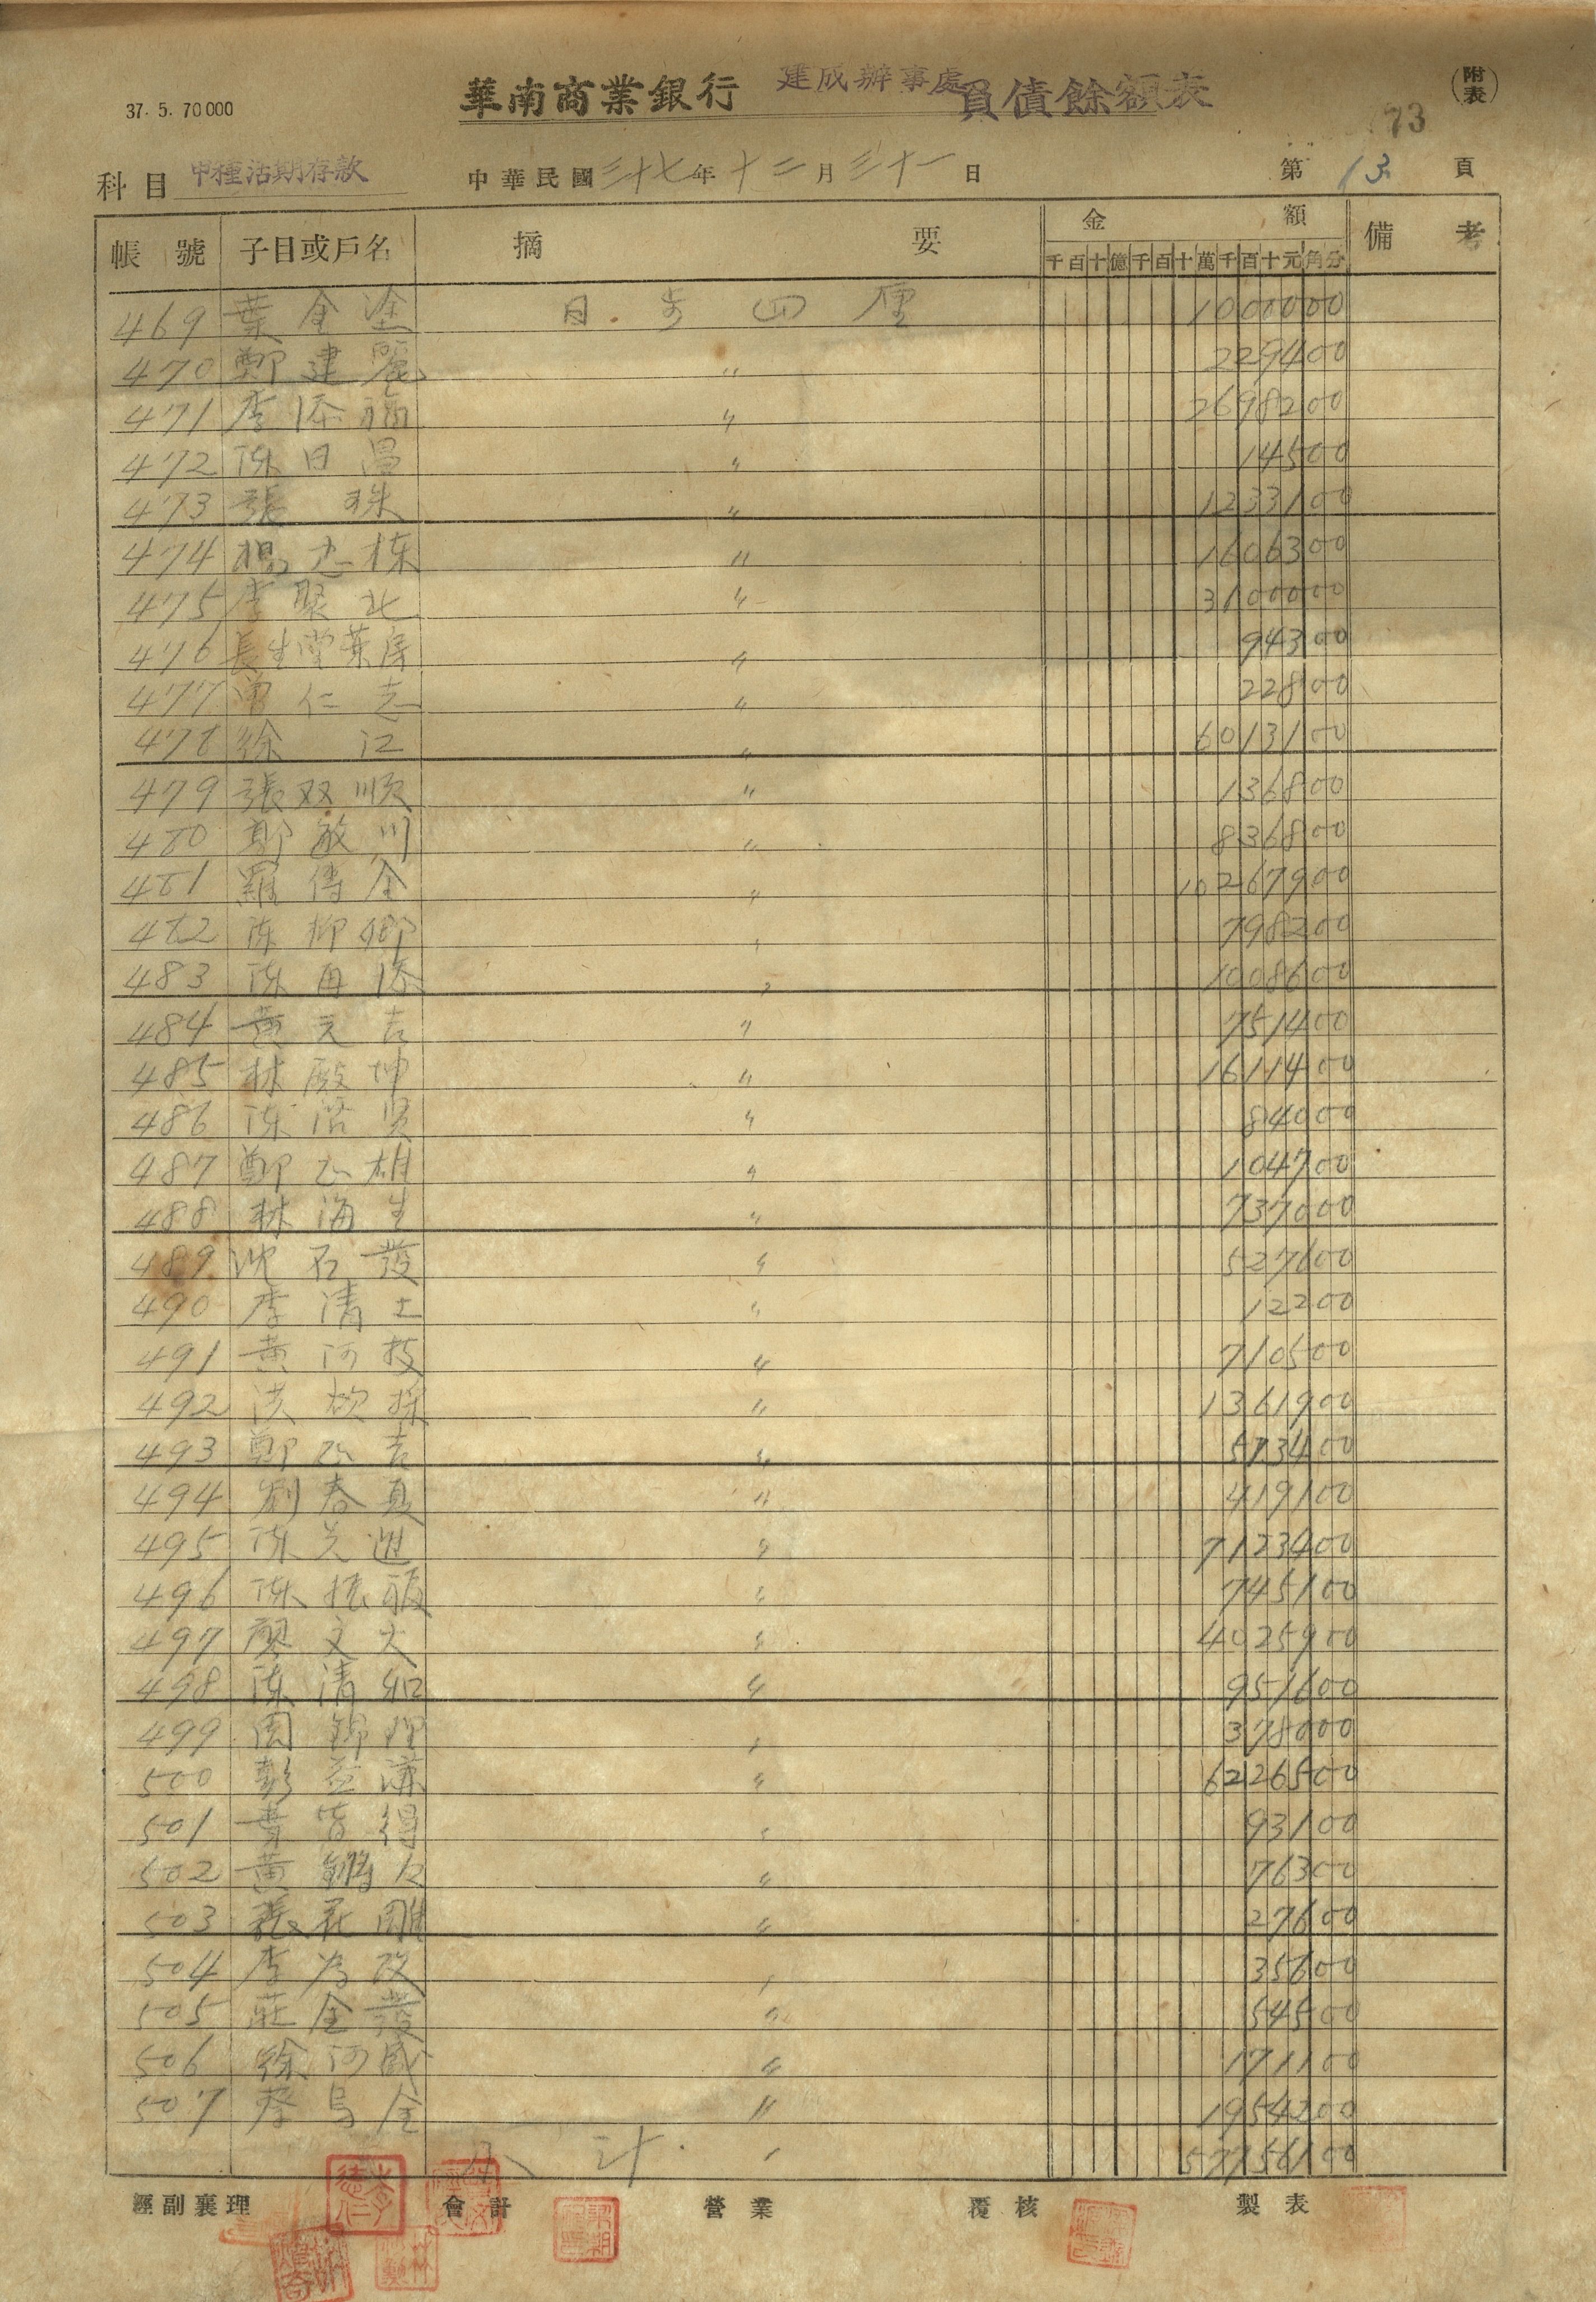 華南商業銀行 建成辦事處 負債餘額表 (附表)
37. 5. 70000
73
科目 甲種活期存款 中華民國三十七年十二月三十一日 第13頁
帳號 子目或戶名 摘要 金額 備考
千百十億千百十萬千百十元角分
469 葉金塗 日步四厘 1000000
470 鄭建麗 〃 229400
471 李添福 〃 2698200
472 陳日昌 〃 14500
473 張珠 〃 1233100
474 楊志棟 〃 1606300
475 李聚北 〃 3100000
476 長生堂葉房 〃 94300
477 曾仁志 〃 22800
478 徐江 〃 6013100
479 張双順 〃 136800
480 鄭敏川 〃 836800
481 羅傳全 〃 10267900
482 陳柳卿 〃 798200
483 陳再添 〃 1008600
484 黃元吉 〃 751400
485 林殿坤 〃 1611400
486 陳 〃 84000
487 鄭正雄 〃 104700
488 林海生 〃 737000
489 沈石發 〃 527600
490 李清土 〃 12200
491 黃河枝 〃 710500
492 洪 〃 1361900
493 鄭 吉 〃 573400
494 劉春真 〃 419100
495 陳 〃 7123400
496 陳振福 〃 745100
497 廖文火 〃 4025900
498 陳清和 〃 951600
499 周錦 〃 378000
500 彭益謙 〃 6226500
501 黃皆得 〃 93100
502 黃 〃 76300
503 張 〃 27600
504 李 〃 35600
505 莊金發 〃 54500
506 徐河 〃 171100
507 蔡烏全 〃 1954200
小計 〃 57756100
經副襄理 會計 營業 覆核 製表